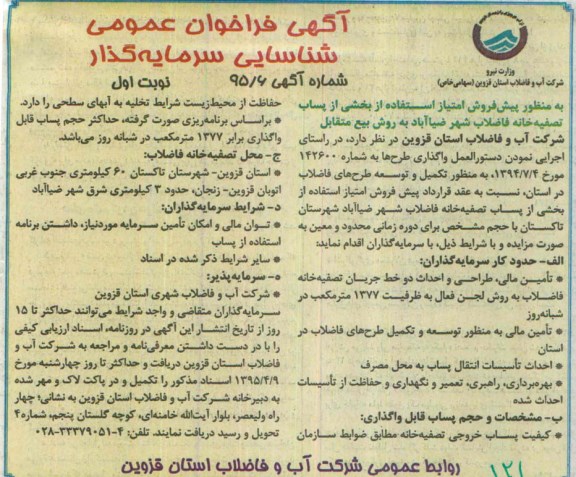 آگهی فراخوان عمومی
شناسایی سرمایه‌گذار
شماره آگهی ۹۵/۶
نوبت اول
وزارت نیرو
شرکت آب و فاضلاب استان قزوین (سهامی خاص)
به منظور پیش‌فروش امتیاز استفاده از بخشی از پساب
تصفیه‌خانه فاضلاب شهر ضیاآباد به روش بیع متقابل
شرکت آب و فاضلاب استان قزوین در نظر دارد، در راستای
اجرایی نمودن دستورالعمل واگذاری طرح‌ها به شماره ۱۴۲۶۰۰
مورخ ۱۳۹۴/۷/۴، به منظور تکمیل و توسعه طرح‌های فاضلاب
در استان، نسبت به عقد قرارداد پیش فروش امتیاز استفاده از
بخشی از پساب تصفیه‌خانه فاضلاب شهر ضیاآباد شهرستان
تاکستان با حجم مشخص برای دوره زمانی محدود و معین به
صورت مزایده و با شرایط ذیل، با سرمایه‌گذاران اقدام نماید:
الف- حدود کار سرمایه‌گذاران:
* تأمین مالی، طراحی و احداث دو خط جریان تصفیه‌خانه
فاضلاب به روش لجن فعال به ظرفیت ۱۳۷۷ مترمکعب در
شبانه‌روز
* تأمین مالی به منظور توسعه و تکمیل طرح‌های فاضلاب در
استان
* احداث تأسیسات انتقال پساب به محل مصرف
* بهره‌برداری، راهبری، تعمیر و نگهداری و حفاظت از تأسیسات
احداث شده
ب- مشخصات و حجم پساب قابل واگذاری:
* کیفیت پساب خروجی تصفیه‌خانه مطابق ضوابط سازمان
حفاظت از محیط‌زیست شرایط تخلیه به آبهای سطحی را دارد.
* براساس برنامه‌ریزی صورت گرفته، حداکثر حجم پساب قابل
واگذاری برابر ۱۳۷۷ مترمکعب در شبانه روز می‌باشد.
ج- محل تصفیه‌خانه فاضلاب:
* استان قزوین- شهرستان تاکستان ۶۰ کیلومتری جنوب غربی
اتوبان قزوین- زنجان، حدود ۳ کیلومتری شرق شهر ضیاآباد
د- شرایط سرمایه‌گذاران:
* توان مالی و امکان تأمین سرمایه موردنیاز، داشتن برنامه
استفاده از پساب
* سایر شرایط ذکر شده در اسناد
ه- سرمایه‌پذیر:
* شرکت آب و فاضلاب شهری استان قزوین
سرمایه‌گذاران متقاضی و واجد شرایط می‌توانند حداکثر تا ۱۵
روز از تاریخ انتشار این آگهی در روزنامه، اسناد ارزیابی کیفی
را با در دست داشتن معرفی‌نامه و مراجعه به شرکت آب و
فاضلاب استان قزوین دریافت و حداکثر تا روز چهارشنبه مورخ
۱۳۹۵/۴/۹ اسناد مذکور را تکمیل و در پاکت لاک و مهر شده
به دبیرخانه شرکت آب و فاضلاب استان قزوین به نشانی؛ چهار
راه ولیعصر، بلوار آیت‌الله خامنه‌ای، کوچه گلستان پنجم، شماره۴
تحویل و رسید دریافت نمایند. تلفن: ۴-۳۳۳۷۹۰۵۱-۰۲۸
روابط عمومی شرکت آب و فاضلاب استان قزوین